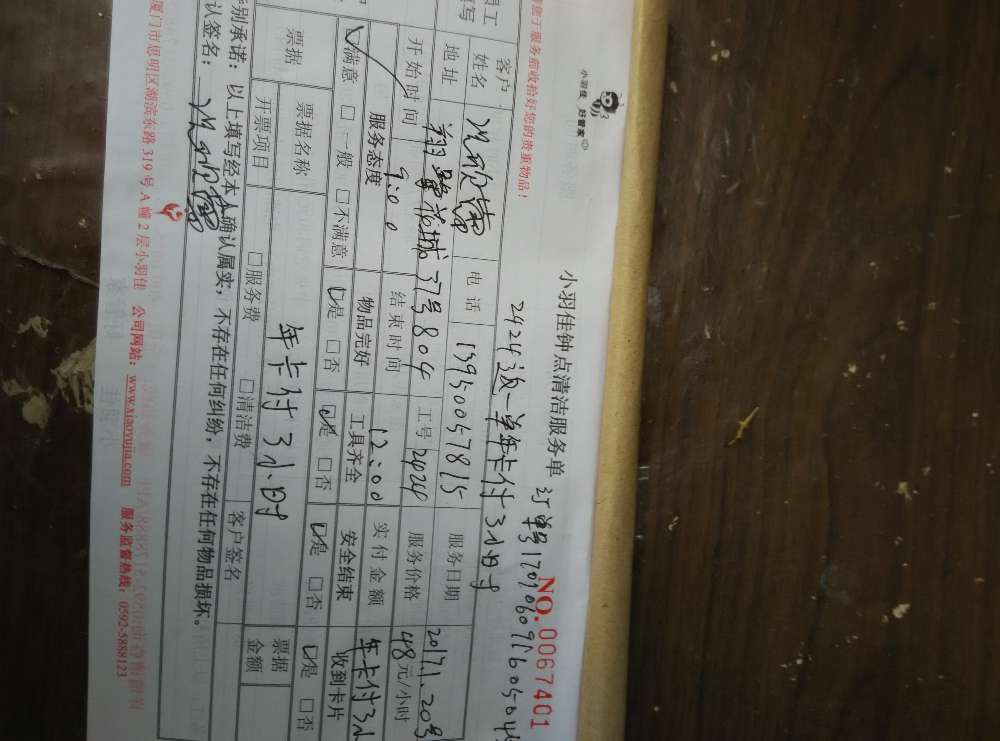 小羽佳 好管家
小羽佳钟点清洁服务单
NO. 0067401
您于服务前收拾好您的贵重物品！
2424派一单年卡付3小时
客户
姓名
电话 19950057815
服务日期 2017.1.20号
员工
填写
地址 翔鹭花城37号804
工号 2424
服务价格 48元/小时
开始时间 9:00
结束时间 12:00
实付金额 年卡付3小
服务态度 物品完好 工具齐全 安全结束 收到卡片
☑满意 □一般 □不满意 ☑是 □否 ☑是 □否 ☑是 □否 ☑是 □否
票据 票据名称 年卡付3小时 票据
金额
开票项目 □服务费 □清洁费 客户签名
特别承诺：以上填写经本人确认属实，不存在任何纠纷，不存在任何物品损坏。
认签名：
厦门市思明区湖滨东路319号A幢2层小羽佳 公司网站：www.xiaoyujia.com 服务监督热线：0592-5888123